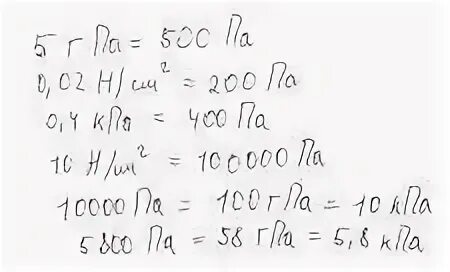 5 гПа = 500 Па
0,02 Н/см² = 200 Па
0,4 кПа = 400 Па
10 Н/см² = 100000 Па
10000 Па = 100 гПа = 10 кПа
5800 Па = 58 гПа = 5,8 кПа